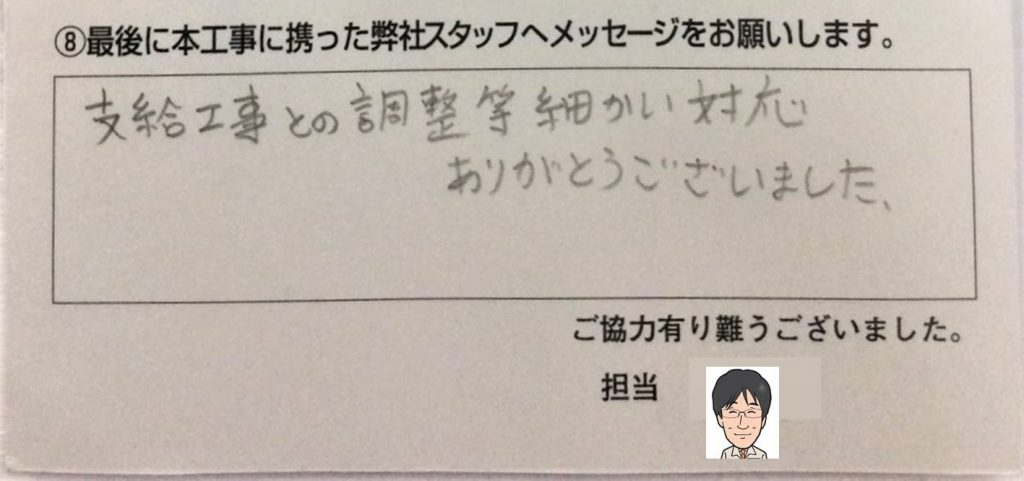 ⑧最後に本工事に携った弊社スタッフへメッセージをお願いします。
支給工事との調整等細かい対応
ありがとうございました、
ご協力有り難うございました。
担当